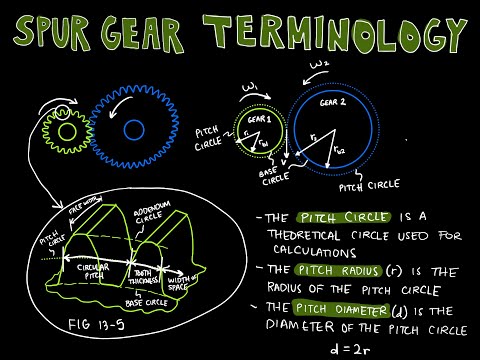 SPUR GEAR TERMINOLOGY
ω₁
ω₂
GEAR 1
GEAR 2
PITCH
CIRCLE
r₁
r_b1
r₂
r_b2
BASE
CIRCLE
PITCH CIRCLE
FACE WIDTH
ADDENDUM
CIRCLE
PITCH
CIRCLE
CIRCULAR
PITCH
TOOTH
THICKNESS
WIDTH OF
SPACE
BASE CIRCLE
FIG 13-5
- THE PITCH CIRCLE IS A
THEORETICAL CIRCLE USED FOR
CALCULATIONS
- THE PITCH RADIUS (r) IS THE
RADIUS OF THE PITCH CIRCLE
- THE PITCH DIAMETER (d) IS THE
DIAMETER OF THE PITCH CIRCLE
d = 2r